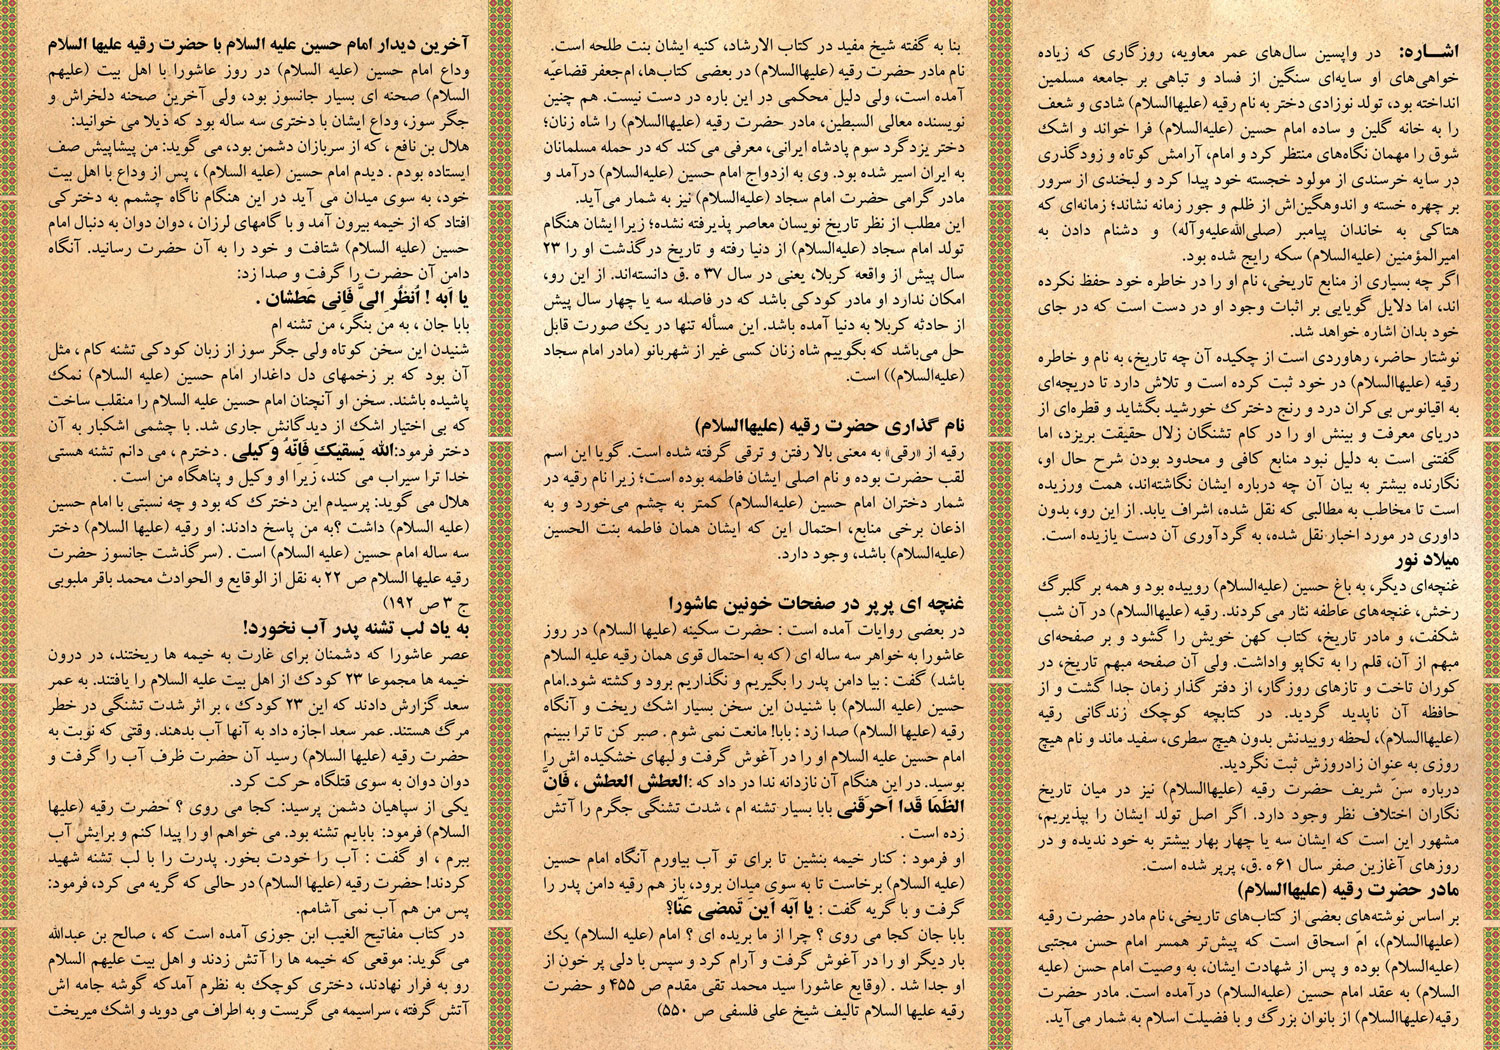 اشـــاره: در واپسین سال‌های عمر معاویه، روزگاری که زیاده
خواهی‌های او سایه‌ای سنگین از فساد و تباهی بر جامعه مسلمین
انداخته بود، تولد نوزادی دختر به نام رقیه (علیهاالسلام) شادی و شعف
را به خانه گلین و ساده امام حسین (علیه‌السلام) فرا خواند و اشک
شوق را مهمان نگاه‌های منتظر کرد و امام، آرامش کوتاه و زودگذری
در سایه خرسندی از مولود خجسته خود پیدا کرد و لبخندی از سرور
بر چهره خسته و اندوهگین‌اش از ظلم و جور زمانه نشاند؛ زمانه‌ای که
هتاکی به خاندان پیامبر (صلی‌الله‌علیه‌وآله) و دشنام دادن به
امیرالمؤمنین (علیه‌السلام) سکه رایج شده بود.
اگر چه بسیاری از منابع تاریخی، نام او را در خاطره خود حفظ نکرده
اند، اما دلایل گویایی بر اثبات وجود او در دست است که در جای
خود بدان اشاره خواهد شد.
نوشتار حاضر، رهاوردی است از چکیده آن چه تاریخ، به نام و خاطره
رقیه (علیهاالسلام) در خود ثبت کرده است و تلاش دارد تا دریچه‌ای
به اقیانوس بی‌کران درد و رنج دخترک خورشید بگشاید و قطره‌ای از
دریای معرفت و بینش او را در کام تشنگان زلال حقیقت بریزد، اما
گفتنی است به دلیل نبود منابع کافی و محدود بودن شرح حال او،
نگارنده بیشتر به بیان آن چه درباره ایشان نگاشته‌اند، همت ورزیده
است تا مخاطب به مطالبی که نقل شده، اشراف یابد. از این رو، بدون
داوری در مورد اخبار نقل شده، به گردآوری آن دست یازیده است.
میلاد نور
غنچه‌ای دیگر، به باغ حسین (علیه‌السلام) روییده بود و همه بر گلبرگ
رخش، غنچه‌های عاطفه نثار می‌کردند. رقیه (علیهاالسلام) در آن شب
شکفت، و مادر تاریخ، کتاب کهن خویش را گشود و بر صفحه‌ای
مبهم از آن، قلم را به تکاپو واداشت. ولی آن صفحه مبهم تاریخ، در
کوران تاخت و تازهای روزگار، از دفتر گذار زمان جدا گشت و از
حافظه آن ناپدید گردید. در کتابچه کوچک زندگانی رقیه
(علیهاالسلام)، لحظه روییدنش بدون هیچ سطری، سفید ماند و نام هیچ
روزی به عنوان زادروزش ثبت نگردید.
درباره سنّ شریف حضرت رقیه (علیهاالسلام) نیز در میان تاریخ
نگاران اختلاف نظر وجود دارد. اگر اصل تولد ایشان را بپذیریم،
مشهور این است که ایشان سه یا چهار بهار بیشتر به خود ندیده و در
روزهای آغازین صفر سال ۶۱ ه .ق، پرپر شده است.
مادر حضرت رقیه (علیهاالسلام)
بر اساس نوشته‌های بعضی از کتاب‌های تاریخی، نام مادر حضرت رقیه
(علیهاالسلام)، امّ اسحاق است که پیش‌تر همسر امام حسن مجتبی
(علیه‌السلام) بوده و پس از شهادت ایشان، به وصیت امام حسن (علیه
السلام) به عقد امام حسین (علیه‌السلام) درآمده است. مادر حضرت
رقیه(علیهاالسلام) از بانوان بزرگ و با فضیلت اسلام به شمار می‌آید.
بنا به گفته شیخ مفید در کتاب الارشاد، کنیه ایشان بنت طلحه است.
نام مادر حضرت رقیه (علیهاالسلام) در بعضی کتاب‌ها، ام‌جعفر قضاعیّه
آمده است، ولی دلیل محکمی در این باره در دست نیست. هم چنین
نویسنده معالی السبطین، مادر حضرت رقیه (علیهاالسلام) را شاه زنان؛
دختر یزدگرد سوم پادشاه ایرانی، معرفی می‌کند که در حمله مسلمانان
به ایران اسیر شده بود. وی به ازدواج امام حسین (علیه‌السلام) درآمد و
مادر گرامی حضرت امام سجاد (علیه‌السلام) نیز به شمار می‌آید.
این مطلب از نظر تاریخ نویسان معاصر پذیرفته نشده؛ زیرا ایشان هنگام
تولد امام سجاد (علیه‌السلام) از دنیا رفته و تاریخ درگذشت او را ۲۳
سال پیش از واقعه کربلا، یعنی در سال ۳۷ ه .ق دانسته‌اند. از این رو،
امکان ندارد او مادر کودکی باشد که در فاصله سه یا چهار سال پیش
از حادثه کربلا به دنیا آمده باشد. این مسأله تنها در یک صورت قابل
حل می‌باشد که بگوییم شاه زنان کسی غیر از شهربانو (مادر امام سجاد
(علیه‌السلام)) است.
نام گذاری حضرت رقیه (علیهاالسلام)
رقیه از «رقی» به معنی بالا رفتن و ترقی گرفته شده است. گویا این اسم
لقب حضرت بوده و نام اصلی ایشان فاطمه بوده است؛ زیرا نام رقیه در
شمار دختران امام حسین (علیه‌السلام) کمتر به چشم می‌خورد و به
اذعان برخی منابع، احتمال این که ایشان همان فاطمه بنت الحسین
(علیه‌السلام) باشد، وجود دارد.
غنچه ای پرپر در صفحات خونین عاشورا
در بعضی روایات آمده است : حضرت سکینه (علیها السلام) در روز
عاشورا به خواهر سه ساله ای (که به احتمال قوی همان رقیه علیه السلام
باشد) گفت : بیا دامن پدر را بگیریم و نگذاریم برود وکشته شود.امام
حسین (علیه السلام) با شنیدن این سخن بسیار اشک ریخت و آنگاه
رقیه (علیها السلام) صدا زد : بابا! مانعت نمی شوم . صبر کن تا ترا ببینم
امام حسین علیه السلام او را در آغوش گرفت و لبهای خشکیده اش را
بوسید. در این هنگام آن نازدانه ندا در داد که :العطش العطش ، فَانَّ
الظَمَا قَدا اَحرَقَنی بابا بسیار تشنه ام ، شدت تشنگی جگرم را آتش
زده است .
او فرمود : کنار خیمه بنشین تا برای تو آب بیاورم آنگاه امام حسین
(علیه السلام) برخاست تا به سوی میدان برود، باز هم رقیه دامن پدر را
گرفت و با گریه گفت : یا اَبَه اَینَ تَمضی عَنّا؟
بابا جان کجا می روی ؟ چرا از ما بریده ای ؟ امام (علیه السلام) یک
بار دیگر او را در آغوش گرفت و آرام کرد و سپس با دلی پر خون از
او جدا شد . (وقایع عاشورا سید محمد تقی مقدم ص ۴۵۵ و حضرت
رقیه علیها السلام تالیف شیخ علی فلسفی ص ۵۵۰)
آخرین دیدار امام حسین علیه السلام با حضرت رقیه علیها السلام
وداع امام حسین (علیه السلام) در روز عاشورا با اهل بیت (علیهم
السلام) صحنه ای بسیار جانسوز بود، ولی آخرین صحنه دلخراش و
جگر سوز، وداع ایشان با دختری سه ساله بود که ذیلا می خوانید:
هلال بن نافع ، که از سربازان دشمن بود، می گوید: من پیشاپیش صف
ایستاده بودم . دیدم امام حسین (علیه السلام) ، پس از وداع با اهل بیت
خود، به سوی میدان می آید در این هنگام ناگاه چشمم به دخترکی
افتاد که از خیمه بیرون آمد و با گامهای لرزان ، دوان دوان به دنبال امام
حسین (علیه السلام) شتافت و خود را به آن حضرت رسانید. آنگاه
دامن آن حضرت را گرفت و صدا زد:
یا اَبه ! اُنظُر اِلیَّ فَانِی عَطشان .
بابا جان ، به من بنگر، من تشنه ام
شنیدن این سخن کوتاه ولی جگر سوز از زبان کودکی تشنه کام ، مثل
آن بود که بر زخمهای دل داغدار امام حسین (علیه السلام) نمک
پاشیده باشند. سخن او آنچنان امام حسین علیه السلام را منقلب ساخت
که بی اختیار اشک از دیدگانش جاری شد. با چشمی اشکبار به آن
دختر فرمود:الله یَسقیکِ فَانّهُ وَکیلی . دخترم ، می دانم تشنه هستی
خدا ترا سیراب می کند، زیرا او وکیل و پناهگاه من است .
هلال می گوید: پرسیدم این دخترک که بود و چه نسبتی با امام حسین
(علیه السلام) داشت ؟به من پاسخ دادند: او رقیه (علیها السلام) دختر
سه ساله امام حسین (علیه السلام) است . (سرگذشت جانسوز حضرت
رقیه علیها السلام ص ۲۲ به نقل از الوقایع و الحوادث محمد باقر ملبوبی
ج ۳ ص ۱۹۲)
به یاد لب تشنه پدر آب نخورد!
عصر عاشورا که دشمنان برای غارت به خیمه ها ریختند، در درون
خیمه ها مجموعا ۲۳ کودک از اهل بیت علیه السلام را یافتند. به عمر
سعد گزارش دادند که این ۲۳ کودک ، بر اثر شدت تشنگی در خطر
مرگ هستند. عمر سعد اجازه داد به آنها آب بدهند. وقتی که نوبت به
حضرت رقیه (علیها السلام) رسید آن حضرت ظرف آب را گرفت و
دوان دوان به سوی قتلگاه حرکت کرد.
یکی از سپاهیان دشمن پرسید: کجا می روی ؟ حضرت رقیه (علیها
السلام) فرمود: بابایم تشنه بود. می خواهم او را پیدا کنم و برایش آب
ببرم ، او گفت : آب را خودت بخور. پدرت را با لب تشنه شهید
کردند! حضرت رقیه (علیها السلام) در حالی که گریه می کرد، فرمود:
پس من هم آب نمی آشامم.
در کتاب مفاتیح الغیب ابن جوزی آمده است که ، صالح بن عبدالله
می گوید: موقعی که خیمه ها را آتش زدند و اهل بیت علیهم السلام
رو به فرار نهادند، دختری کوچک به نظرم آمدکه گوشه جامه اش
آتش گرفته ، سراسیمه می گریست و به اطراف می دوید و اشک میریخت